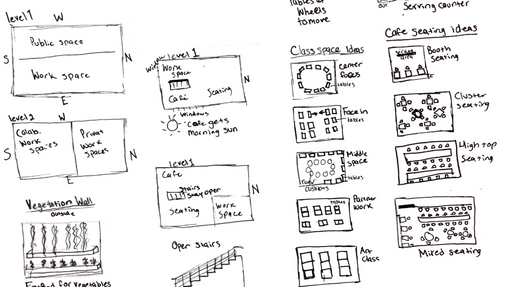 level 1 W
Public space
S
N
Work space
E
level 2 W
Colab.
Work
spaces
Private
Work
spaces
S
N
E
Vegetation Wall
outside
Food for vegetables
level 1
window
Work
space
Café
Seating
N
windows
Cafe gets
morning sun
level 1
Cafe
stairs
stay open
Seating
Work
Space
N
Open stairs
Tables w/
Wheels
to move
Class space Ideas
center
faces
tables
Face in
tables
Middle
space
floor
cushions
tables
Partner
Work
tables
Art
class
Serving counter
Cafe Seating Ideas
Booth
Seating
Cluster
seating
High top
Seating
Mixed seating